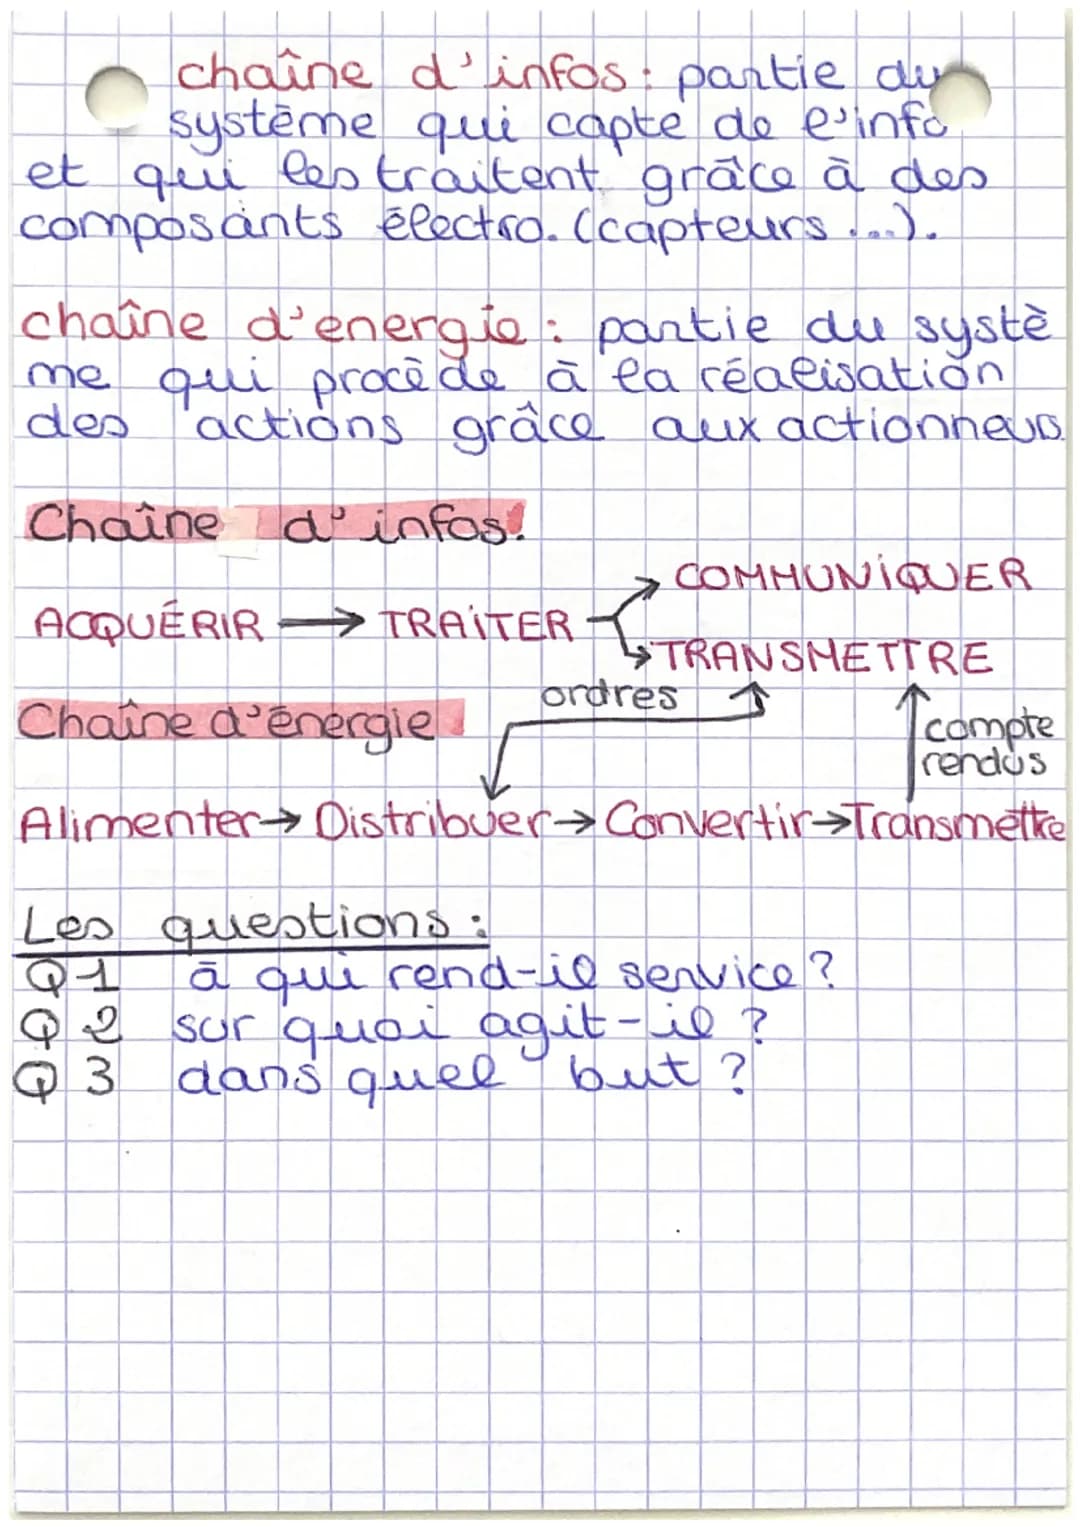 chaîne d'infos: partie du
système qui capte de l'info
et qui les traitent grâce à des
composants électro. (capteurs ...).
chaîne d'energie: partie du systè
me qui procède à la réalisation
des actions grâce aux actionneurs.
Chaîne d'infos:
COMMUNIQUER
ACQUÉRIR → TRAITER
TRANSMETTRE
ordres
Chaîne d'énergie
compte
rendus
Alimenter → Distribuer → Convertir → Transmettre
Les questions:
Q1 à qui rend-il service?
Q2 sur quoi agit-il?
Q3 dans quel but?